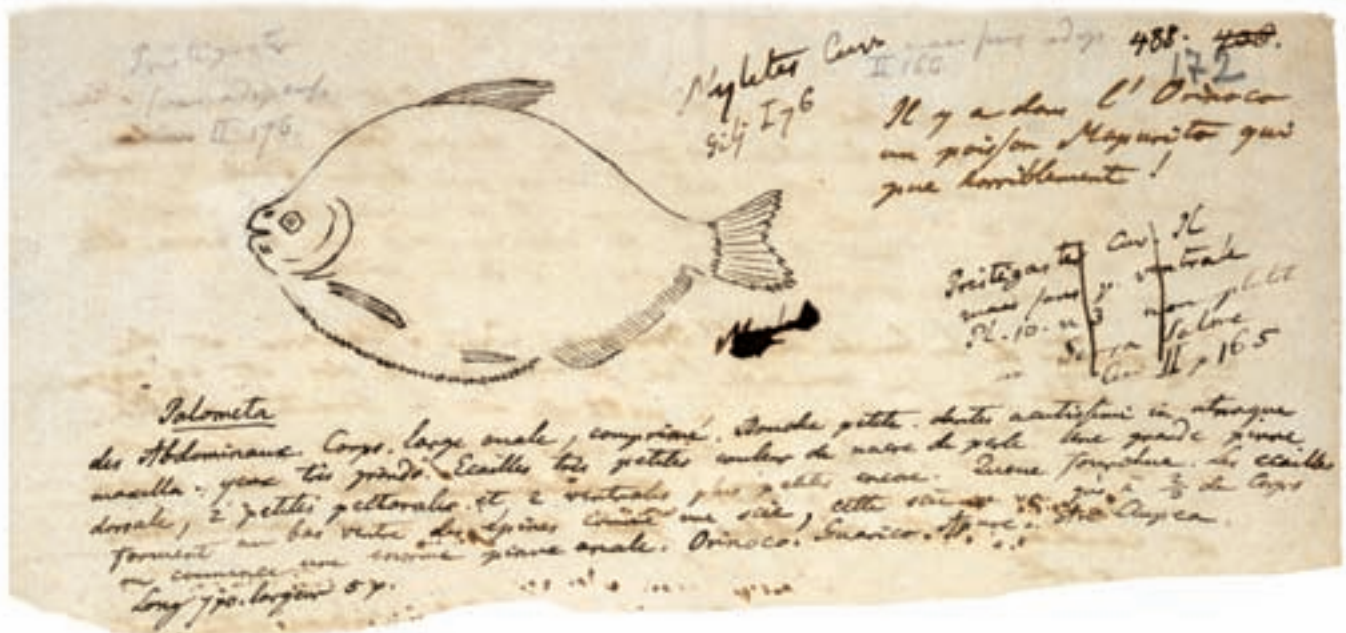 488. 488.
172
Myletes Cuv.
Gilj I 76
II 166
II 176.
Il y a dans l'Orinoco
un poisson Mapurito qui
pue horriblement !
Pristigaster Cuv. Il
mais sans p. ventrale
Pl. 10. n 3 non
Cuv II p 165
Palometa
des Abdominaux. Corps large ovale, comprimé. Bouche petite. dentes acutissimi in utraque
maxilla. yeux très grands. Ecailles très petites couleur de nacre de perle Une grande pinne
dorsale, 2 petites pettorales et 2 ventrales plus petites encore. Queue fourchue. Les ecailles
forment au bas ventre des épines comme une scie, cette scie va jusqu'à 2/3 du Corps
où commence une enorme pinne anale. Orinoco. Guarico. Apure. Clupea.
Long 7 po. largeur 5 p.